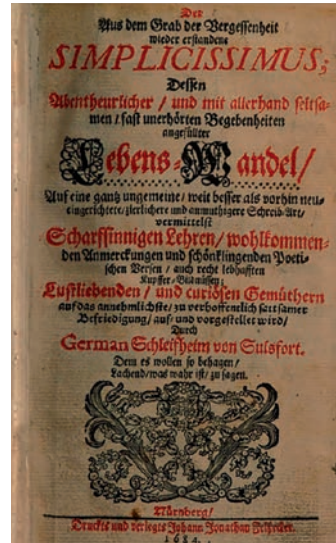 Der
Aus dem Grab der Vergessenheit
wieder erstandene
SIMPLICISSIMUS;
Dessen
Abentheurlicher / und mit allerhand seltsa-
men / fast unerhörten Begebenheiten
angefüllter
Lebens-Wandel /
Auf eine gantz ungemeine / weit besser als vorhin neu-
eingerichtete / zierlichere und anmuthigere Schreib-Art /
vermittelst
Scharffsinnigen Lehren / wohlkommen-
den Anmerckungen und schönklingenden Poeti-
schen Versen / auch recht lebhafften
Kupffer-Bildnüssen;
Lustliebenden / und curiösen Gemüthern
auf das annehmlichste / zu verhoffentlich sattsamer
Befriedigung / auf- und vorgestellet wird /
Durch
German Schleifheim von Sulsfort.
Dem es wollen so behagen /
Lachend / was wahr ist / zu sagen.
Nürnberg /
Druckts und verlegts Johann Jonathan
1684.